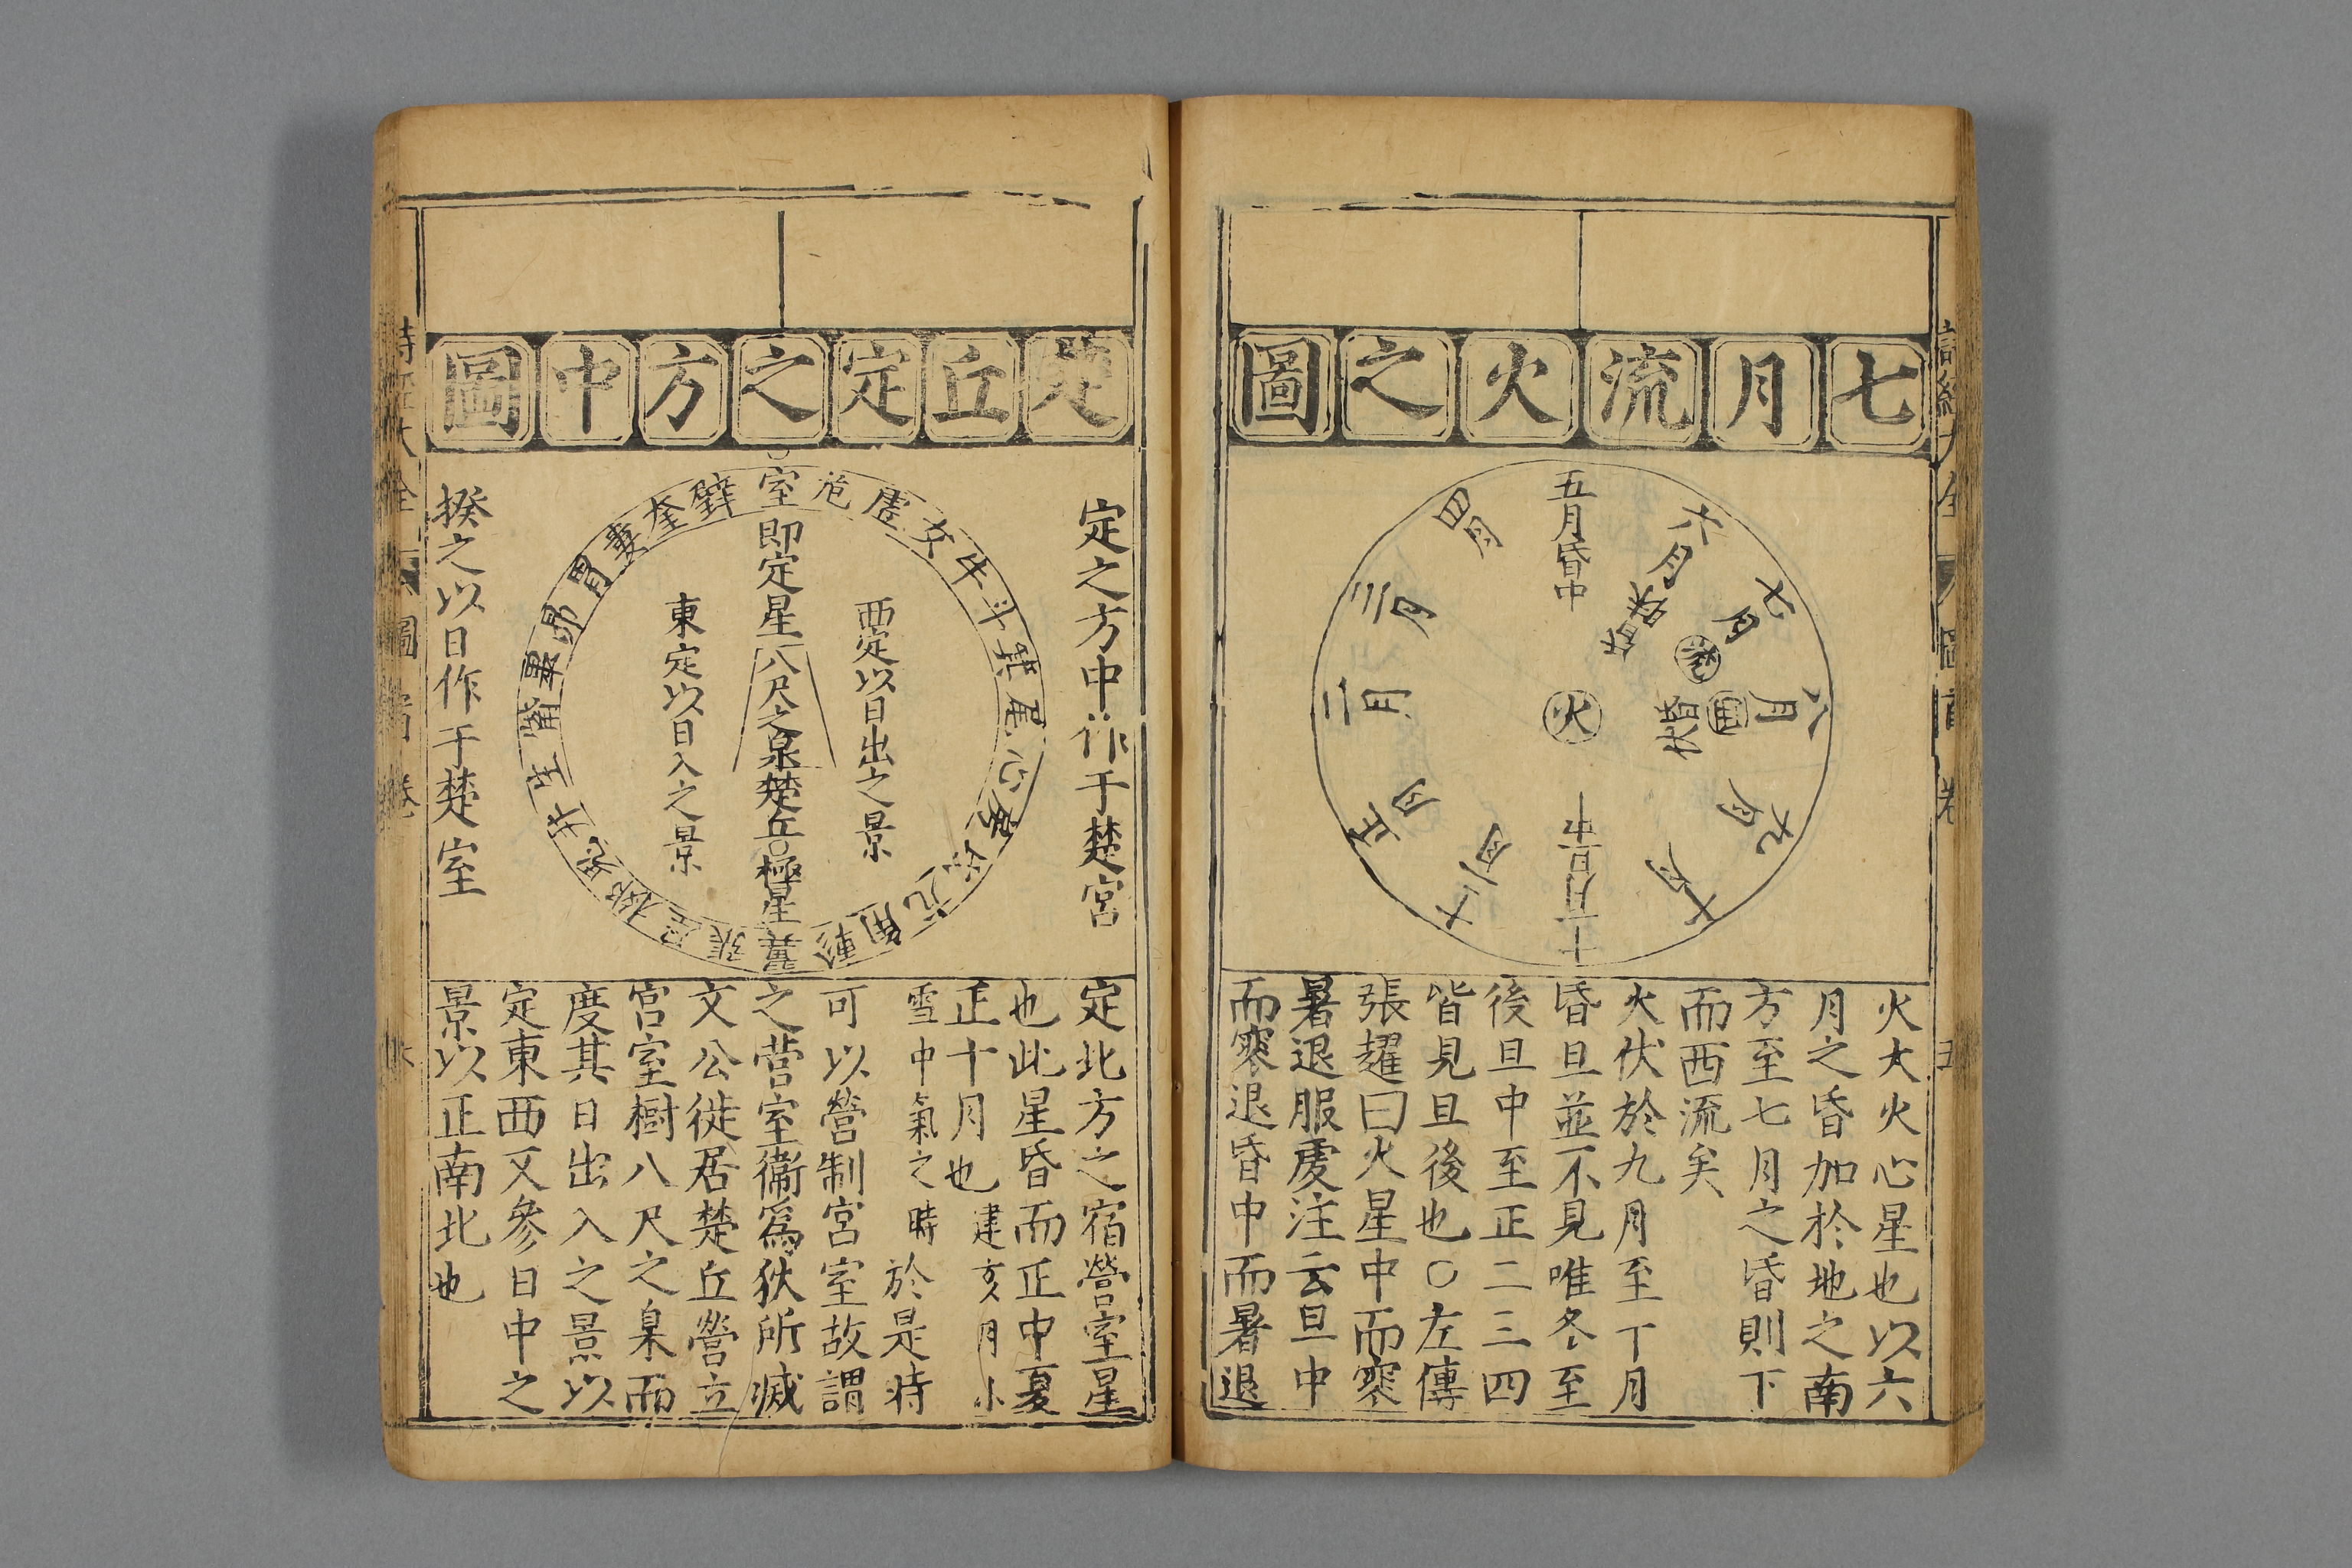 七月流火之圖
五月昏中
六月
七月
八月
九月
十月
十一月旦中
十二月
正月
二月
三月
四月
火
酉
火大火心星也以六
月之昏加於地之南
方至七月之昏則下
而西流矣
火伏於九月至丁月
昏旦並不見唯冬至
後旦中至正二三四
皆見旦後也○左傳
張趯曰火星中而寒
暑退服虔注云旦中
而寒退昏中而暑退
楚丘定之方中圖
定之方中作于楚宮
室危虛女牛斗箕尾心房氐亢角軫翼張星柳鬼井參觜畢昴胃婁奎壁
西定以日出之景
即定星八尺之臬楚丘○極星
東定以日入之景
揆之以日作于楚室
定北方之宿營室星
也此星昏而正中夏
正十月也建亥月小
雪中氣之時於是時
可以營制宮室故謂
之營室衞爲狄所滅
文公徙居楚丘營立
宮室樹八尺之臬而
度其日出入之景以
定東西又參日中之
景以正南北也